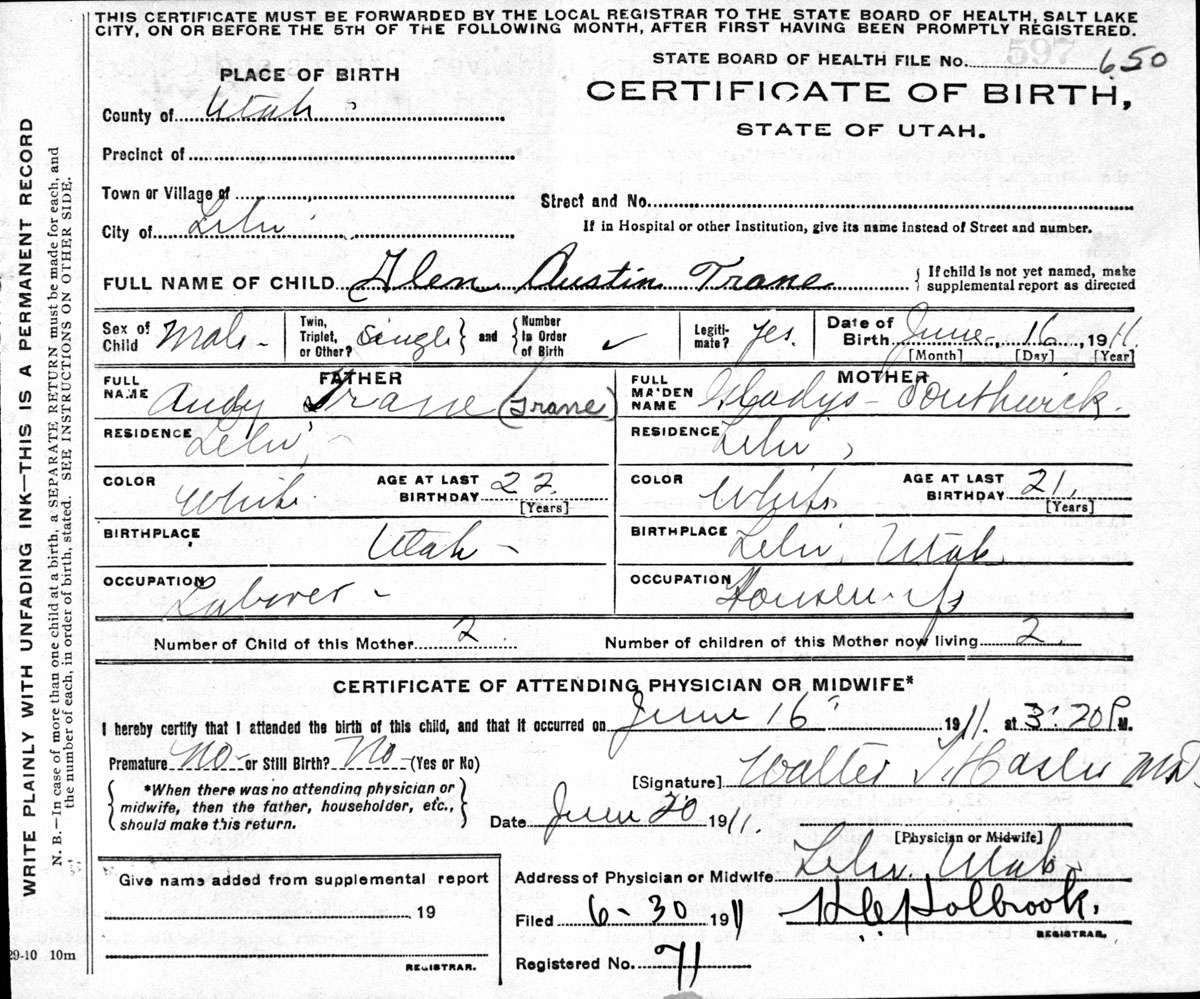 THIS CERTIFICATE MUST BE FORWARDED BY THE LOCAL REGISTRAR TO THE STATE BOARD OF HEALTH, SALT LAKE
CITY, ON OR BEFORE THE 5TH OF THE FOLLOWING MONTH, AFTER FIRST HAVING BEEN PROMPTLY REGISTERED.
STATE BOARD OF HEALTH FILE No. 597 650
PLACE OF BIRTH
CERTIFICATE OF BIRTH,
STATE OF UTAH.
County of Utah
Precinct of
Town or Village of
Street and No.
City of Lehi
If in Hospital or other Institution, give its name instead of Street and number.
FULL NAME OF CHILD Glen Austin Trane { If child is not yet named, make
supplemental report as directed
Sex of Child Male - Twin, Triplet, or Other? Single } and { Number In Order of Birth ✓ Legiti-mate? Yes. Date of Birth June 16, 1911.
[Month] [Day] [Year]
FATHER
FULL NAME Andy Trane (Trane)
RESIDENCE Lehi
COLOR White AGE AT LAST BIRTHDAY 22
[Years]
BIRTHPLACE Utah -
OCCUPATION Laborer -
MOTHER
FULL MAIDEN NAME Gladys Southwick.
RESIDENCE Lehi
COLOR White AGE AT LAST BIRTHDAY 21.
[Years]
BIRTHPLACE Lehi Utah
OCCUPATION Housewife
Number of Child of this Mother 2 Number of children of this Mother now living 2
CERTIFICATE OF ATTENDING PHYSICIAN OR MIDWIFE*
I hereby certify that I attended the birth of this child, and that it occurred on June 16" 1911. at 3:20 P. M.
Premature No or Still Birth? No (Yes or No)
[Signature] Walter T Hasler MD
*When there was no attending physician or
midwife, then the father, householder, etc.,
should make this return.
Date June 20 1911.
[Physician or Midwife]
Address of Physician or Midwife Lehi Utah
Filed 6-30 1911 H C Holbrook.
REGISTRAR.
Registered No. 71
Give name added from supplemental report
19
REGISTRAR.
29-10 10m
WRITE PLAINLY WITH UNFADING INK—THIS IS A PERMANENT RECORD
N. B.—In case of more than one child at a birth, a SEPARATE RETURN must be made for each, and
the number of each, in order of birth, stated. SEE INSTRUCTIONS ON OTHER SIDE.